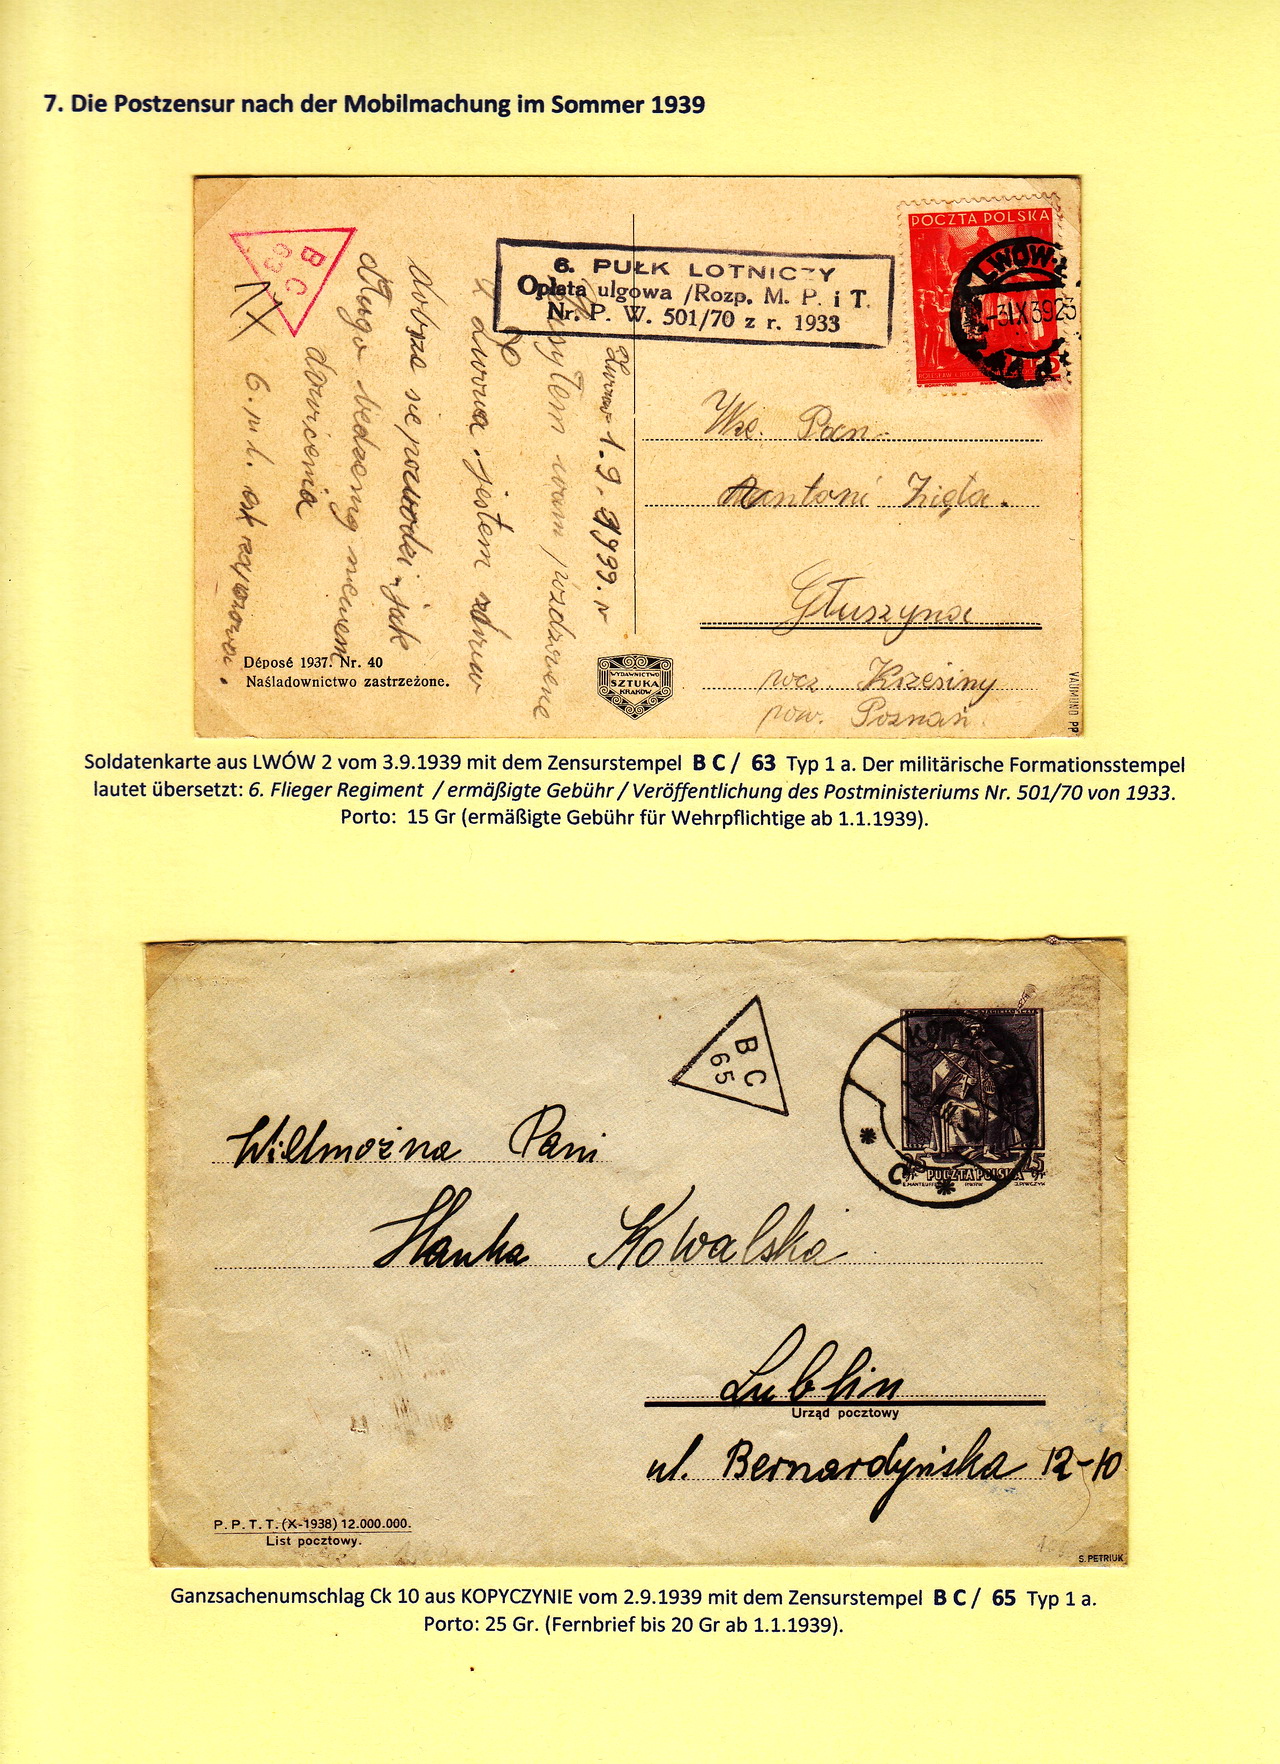 7. Die Postzensur nach der Mobilmachung im Sommer 1939
B C
63
6. PUŁK LOTNICZY
Opłata ulgowa /Rozp. M. P. i T.
Nr. P. W. 501/70 z r. 1933
POCZTA POLSKA
LWÓW 2
-3IX3923
1.9.
wam
z Lwowa. jestem zdrów
dobrze się jak
długo będziemy
6. p. l.
Wze. Pan
Antoni
Głuszyna
pocz. Krzesiny
pow. Poznań.
Déposé 1937. Nr. 40
Naśladownictwo zastrzeżone.
WYDAWNICTWO
SZTUKA
KRAKÓW
Soldatenkarte aus LWÓW 2 vom 3.9.1939 mit dem Zensurstempel B C / 63 Typ 1 a. Der militärische Formationsstempel
lautet übersetzt: 6. Flieger Regiment / ermäßigte Gebühr / Veröffentlichung des Postministeriums Nr. 501/70 von 1933.
Porto: 15 Gr (ermäßigte Gebühr für Wehrpflichtige ab 1.1.1939).
B C
65
25 POCZTA POLSKA 25
Wielmożna Pani
Hanka Kowalska
Lublin
Urząd pocztowy
ul. Bernardyńska 12-10
P. P. T. T. (X-1938) 12.000.000.
List pocztowy.
S. PETRIUK
Ganzsachenumschlag Ck 10 aus KOPYCZYNIE vom 2.9.1939 mit dem Zensurstempel B C / 65 Typ 1 a.
Porto: 25 Gr. (Fernbrief bis 20 Gr ab 1.1.1939).